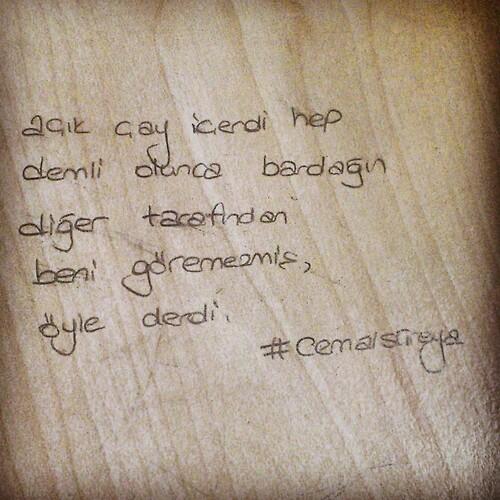 açık çay içerdi hep
demli olunca bardağın
diğer tarafından
beni göremezmiş,
öyle derdi.
#Cemalsüreya